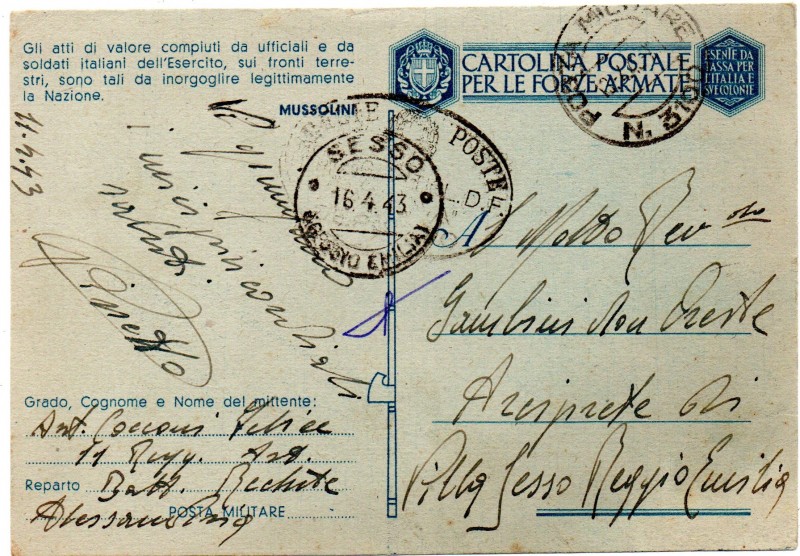 Gli atti di valore compiuti da ufficiali e da
soldati italiani dell'Esercito, sui fronti terre-
stri, sono tali da inorgoglire legittimamente
la Nazione.
MUSSOLINI
CARTOLINA POSTALE
PER LE FORZE ARMATE
ESENTE DA
TASSA PER
L'ITALIA E
SVE COLONIE
POSTA MILITARE
N. 3150
POSTE
SESSO
16.4.43
(REGGIO EMILIA)
11.4.43
A Molto Rev.do
Gambini Don Oreste
Arciprete di
Villa Sesso Reggio Emilia
Grado, Cognome e Nome del mittente:
Art. Felice
11 Regg. Art.
Reparto Batt. Reclute
Alessandria
POSTA MILITARE